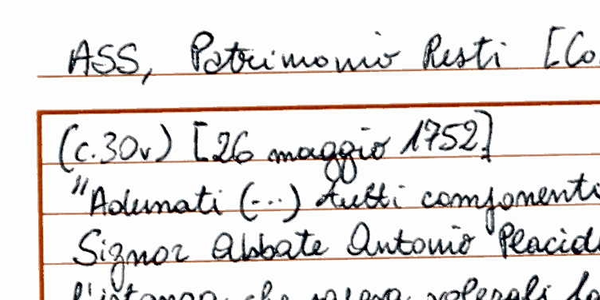 ASS, Patrimonio Resti [Co
(c.30v) [26 maggio 1752]
"Adunati (...) tutti componenti
Signor Abbate Antonio Placid
l'istanza, che